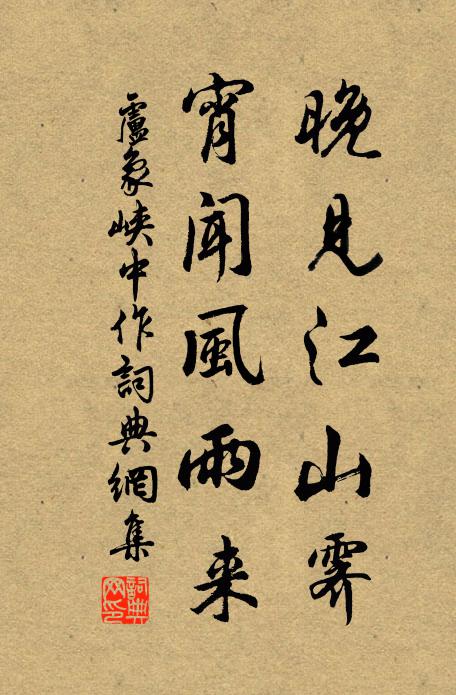 晚見江山霽
宵聞風雨来
盧象峽中作詞典網集
詞典网印